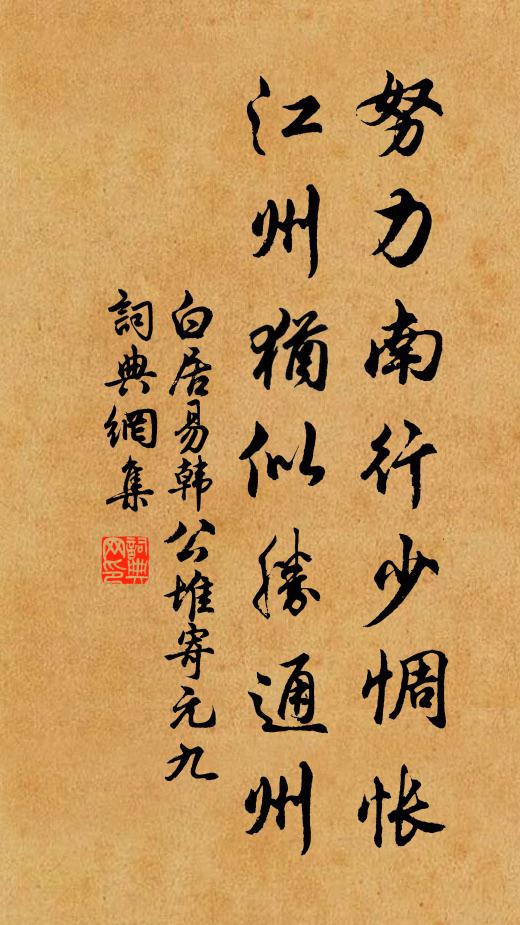 努力南行少惆怅
江州猶似勝通州
白居易韩公堆寄元九
詞典網集
詞典网印